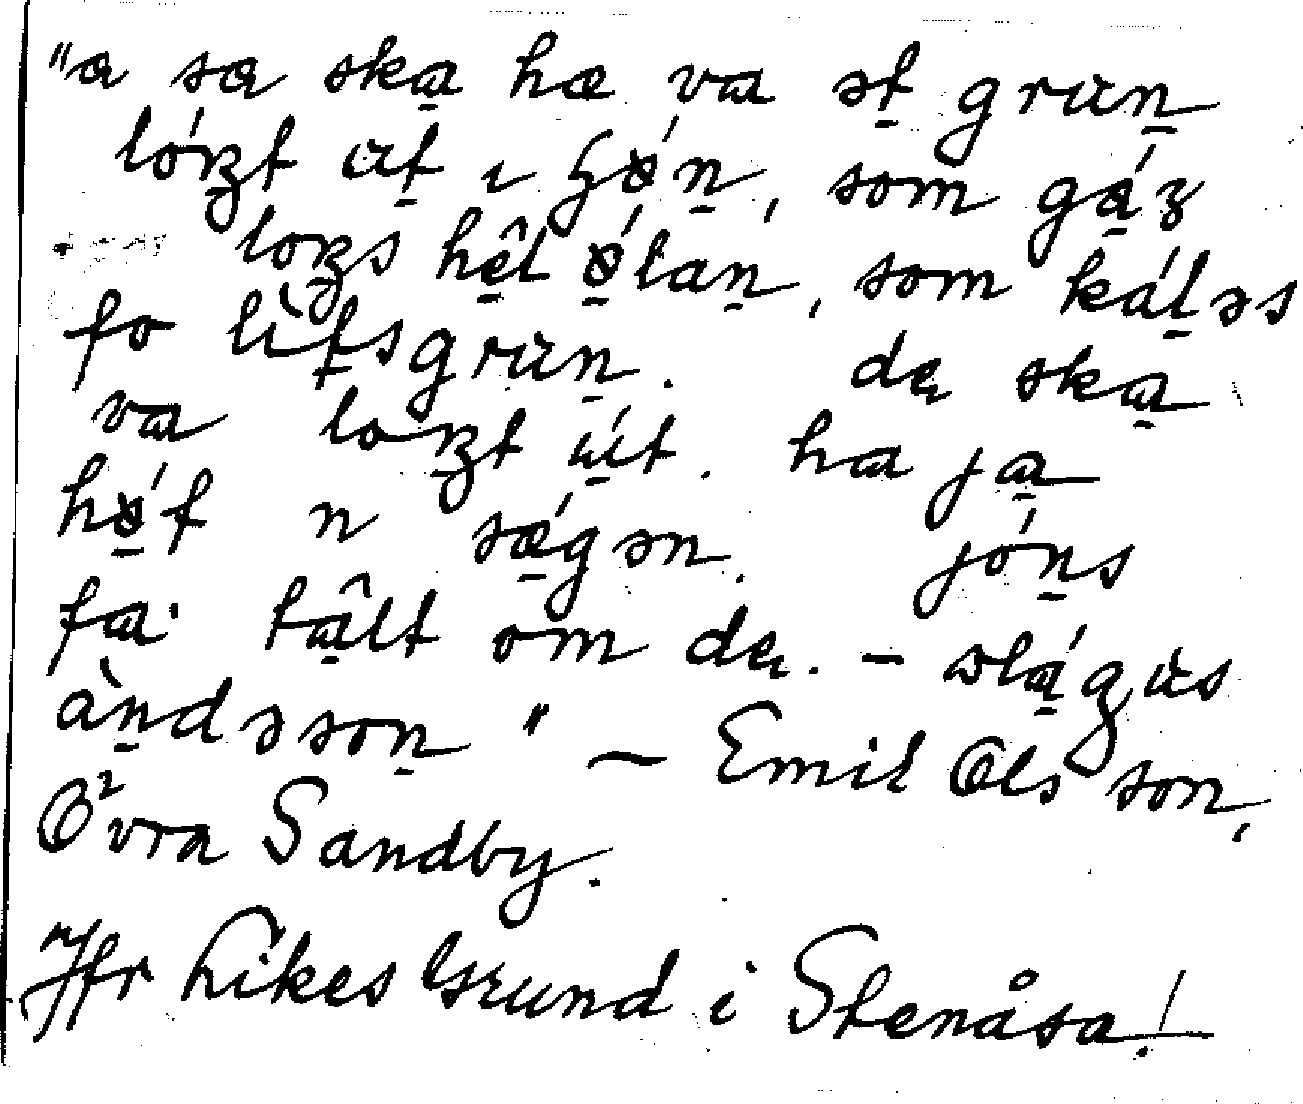 "a sa ska hæ va ət grun
lóʒt ut ı hǿn, som gáʒ
loʒs hêl ǿlan, som káləs
fo lìtsgrun. dɛ ska
va loʒt út. ha ja
hǿt n sǽgən. jóns
fa· tâlt om dɛ. – slágus
àndəson" – Emil Olsson,
Övra Sandby.
Jfr Likes grund i Stenåsa!